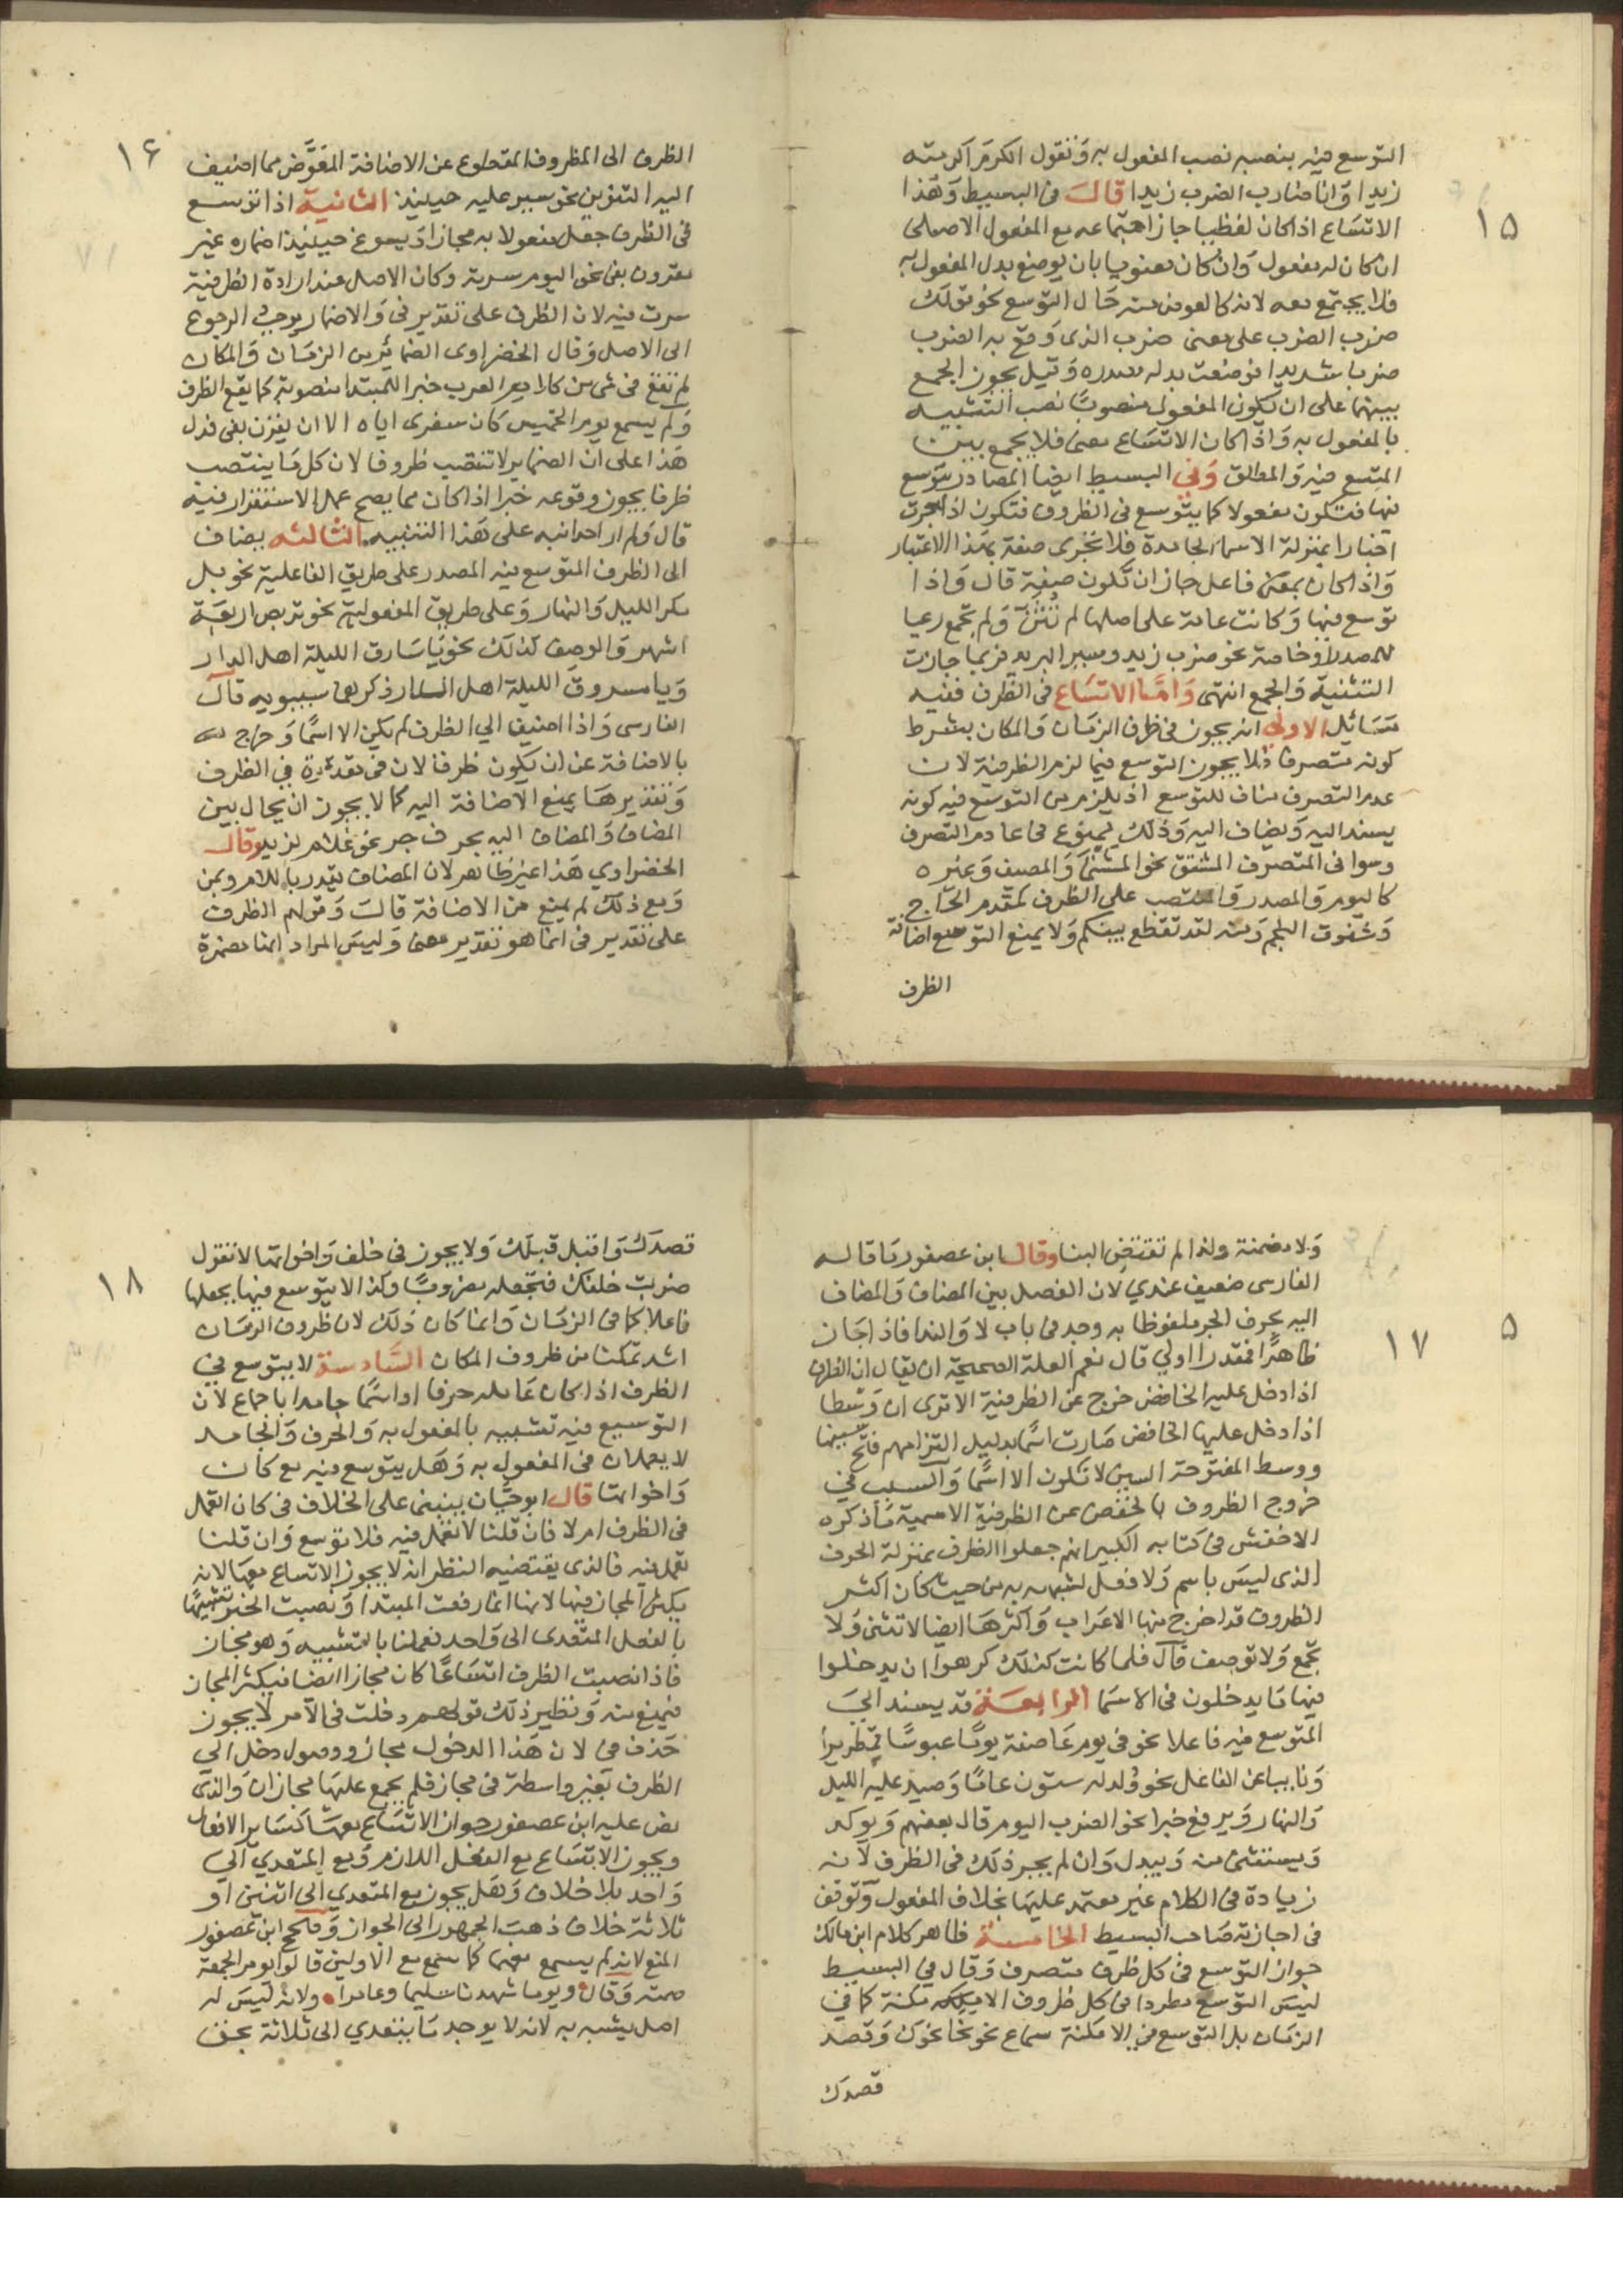 ١٥
التوسع فيه بنصبه نصب المفعول به وَتقول الكرَم اكرمته
زيدا وَانا ضارب الضرب زيدا قالَ فى البسيط وَهذا
الاتسَاع اذا كان لفظيا جاز اجتماعه مع المفعول الاصلى
ان كان له مفعول وَان كان معنويا بان يوضع بدل المفعول به
فلا يجتمع معه لانه كالعوض منه حَال التوسع نحو قولك
ضرب الضرب على معنى ضرب الذى وَقع به الضرب
ضربا شديدا فوضعت بدله مصدره وَقيل يجوز الجمع
بينهما على ان يكون المفعول منصوبًا نصب التشبيه
بالمفعول به وَاذا كان الاتسَاع معنى فلا يجمع بين
المتسع فيه وَالمطلق وَفي البسيط ايضا المصادر يتوسع
فيها فتكون مفعولا كما يتوسع فى الظروف فتكون اذا جرت
اخبارا بمنزلة الاسما الجامدة فلا تجرى صفة بهذا الاعتبار
وَاذا كان بمعنى فاعل جاز ان تكون صفة قال وَاذا
توسع فيها وَكانت عامة على اصلها لم تُثنَّ وَلم تجمع رعيا
للمصدر او خاصة نحو ضرب زيد وسير البريد فربما جازت
التثنية وَالجمع انتهى وَامَّا الاتسَاع فى الظرف ففيه
مسَائل الاولي انه يجوز فى ظرف الزمَان وَالمكان بشرط
كونه متصرفا فلا يجوز التوسع فيما لزم الظرفية لان
عدم التصرف مناف للتوسع اذ يلزم من التوسع فيه كونه
يسند اليه وَيضاف اليه وَذلك ممنوع فى عادم التصرف
وسوا فى المتصرف المشتق نحو المشتى وَالمصيف وَغيره
كاليوم وَالمصدر وَالمنتصب على الظرف كمقدم الحَاج
وَخفوق النجم وَمنه لقد تقطع بينكم وَلا يمنع التوسع اضافة
الظرف
١٦
الظرف الى المظروف المقطوع عن الاضافة المعَوَّض مما اضيف
اليه التنوين نحو سير عليه حينئذ الثانية اذا توسع
فى الظرف جعل مفعولا به مجازا وَيسوغ حينئذ اضماره غير
مقرون بفى نحو اليوم سرته وكان الاصل عند ارادة الظرفية
سرت فيه لان الظرف على تقدير فى وَالاضمار يوجب الرجوع
الى الاصل وَقال الخضراوى الضمائر من الزمَان وَالمكان
لم تقع فى شى من كلام العرب خبرا للمبتدا منصوبة كما يقع الظرف
وَلم يسمع يوم الخميس كَان سفرى اياه الا ان يقرن بفى فدل
هَذا على ان الضماير لا تنتصب ظروفا لان كل مَا ينتصب
ظرفا يجوز وقوعه خبرا اذا كان مما يصح عمل الاستقرار فيه
قال وَلم ار احدا نبه على هَذا التنبيه الثالثه يضاف
الى الظرف المتوسع فيه المصدر على طريق الفاعلية نحو بل
مكر الليل وَالنهار وَعلى طريق المفعولية نحو تربص اربعَة
اشهر وَالوصف كذلك نحو يَا سَارق الليلة اهل الدار
وَيا مسروق الليلة اهل الدار ذكرهما سيبويه قال
الفارسى وَاذا اضيف الي الظرف لم يكن الا اسمًا وَخرج
بالاضافة عن ان يكون ظرفا لان فى مقدرة في الظرف
وَتقديرهَا يمنع الاضافة اليه كما لا يجوز ان يحال بين
المضاف وَالمضاف اليه بحرف جر نحو غلام لزيد وقال
الخضراوي هَذا غير ظاهر لان المضاف يقدر باللام ومن
وَمع ذلك لم يمنع من الاضافة قالَ وَقولهم الظرف
على تقدير فى انما هو تقدير معنى وَليسَ المراد انها مضمرة
١٧
٥
وَلا مضمنة ولذا لم تقتض البنا وقال ابن عصفور مَا قاله
الفارسى ضعيف عندي لان الفصل بين المضاف وَالمضاف
اليه بحرف الجر ملفوظا به وجد فى باب لا وَالندا فاذا جَاز
ظاهرًا فمقدرا اولي قال نعم العلة الصحيحة ان يقال ان الظرف
اذا دخل عليه الخافض خرج عن الظرفية الا ترى ان وَسطا
اذا دخل عليها الخافض صَارت اسمًا بدليل التزامهم فتح سينها
ووسط المفتوحة السين لا تكون الا اسمًا وَالسبب في
خروج الظروف بالخفض عن الظرفية الاسمية مَا ذكره
الاخفش فى كتابه الكبير انهم جعلوا الظرف بمنزلة الحرف
الذى ليسَ باسم وَلا فعل لشبهه به من حيث كَان اكثر
الظروف قد اخرج منها الاعرَاب وَاكثرهَا ايضا لا تثنى وَلا
تجمع وَلا توصف قَال فلما كانت كذلك كرهوا ان يدخلوا
فيها مَا يدخلون فى الاسمَا الرابعَة قد يسند الىَ
المتوسع فيه فاعلا نحو فى يوم عَاصفة يومًا عبوسًا قمطريرا
وَنايبا عن الفاعل نحو وُلد له ستون عامًا وَصيد عليه الليل
وَالنهار وَيرفع خبرا نحو الضرب اليوم قال بعضهم وَيوكد
وَيستثنى منه وَيبدل وَان لم يجز ذلك فى الظرف لَانه
زيادة فى الكلام غير معتمد عليهَا بخلاف المفعول وَتوقف
فى اجازته صَاحب البسيط الخامسة ظاهر كلام ابن مالك
جواز التوسع فى كل ظرف متصرف وَقال في البسيط
ليسَ التوسع مطردا فى كل ظروف الامكنة كما في
الزمَان بل التوسع في الامكنة سماع نحو نحا نحوك وَقصد
قصدك
١٨
قصدَك وَاقبل قبلَك وَلا يجوز فى خلف وَاخواتها لا تقول
ضربت خلفك فتجعله مضروبًا وكذا لا يتوسع فيها بجعلها
فاعلا كما فى الزمَان وَانما كَان ذلَك لان ظروف الزمَان
اشد تمكنا من ظروف المكان السَّادسة لا يتوسع في
الظرف اذا كان عَامله حرفا او اسمًا جامدا باجماع لان
التوسيع فيه تشبيه بالمفعول به وَالحرف وَالجامد
لا يعملان فى المفعول به وَهل يتوسع فيه مع كَان
وَاخواتها قال ابو حيَّان ينبنى على الخلاف فى كان اتعمل
فى الظرف ام لا فان قلنا لا تعمل فيه فلا توسع وَان قلنا
تعمل فيه فالذى يقتضيه النظر انه لا يجوز الاتساع معها لانه
يكثر المجاز فيها لانها انما رفعت المبتدا وَنصبت الخبر تشبيهًا
بالفعل المتعدى الى وَاحد فعملها بالتشبيه وَهو مجَاز
فاذا نصبت الظرف اتسَاعًا كان مجازا ايضا فيكثر المجاز
فيمنع منه وَنظير ذلك قولهم دخلت فى الامر لا يجوز
حَذف فى لان هَذا الدخول مجاز ووصول دخل الي
الظرف بغير واسطة فى مجاز فلم يجمع عليهَا مجازان وَالذى
نص عليه ابن عصفور جواز الاتسَاع معهَا كسَاير الافعال
ويجوز الاتسَاع مع الفعل اللازم وَمع المتعدي الي
وَاحد بلا خلاف وَهَل يجوز مع المتعدي الى اثنين او
ثلاثة خلاف ذهبَ الجمهور الى الجواز وَصحح ابن عصفور
المنع لانه لم يسمع معهما كما سمع مع الاولين قالوا يوم الجمعة
صمته وَقال ويوما شهدناه سليما وعامرا ولانه ليسَ له
اصل يشبه به لانه لا يوجد مَا يتعدي الى ثلاثة بحق